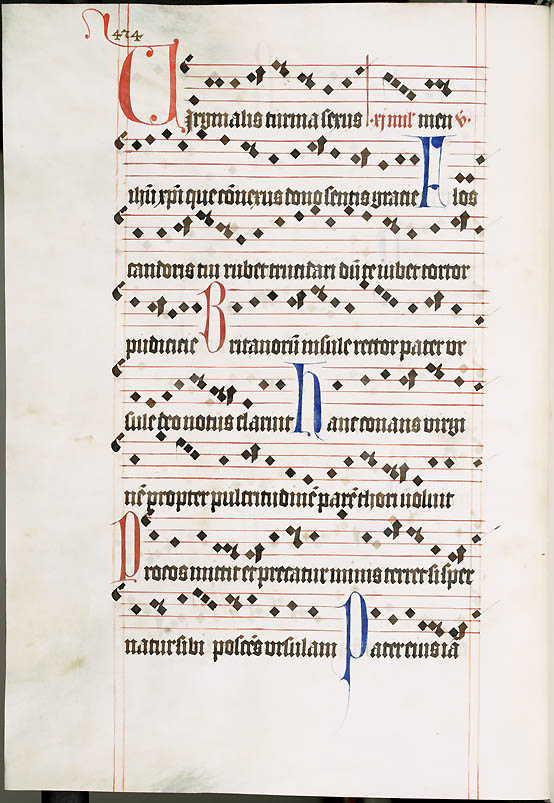 474
Virginalis turma sexus · xj milʼ men v·
ihū xp̄i que cōnexus dono sentis gratie Flos
candoris tui rubet trucidari dū te iubet tortor
pudicitie Britanorū insule rector pater vr
sule deo notus claruit Hanc conans virgi
nē propter pulcritudinē parēthori uoluit
Procos mittit et precatur minis terret si sper
natur sibi poscēs vrsulam Pater eius iā